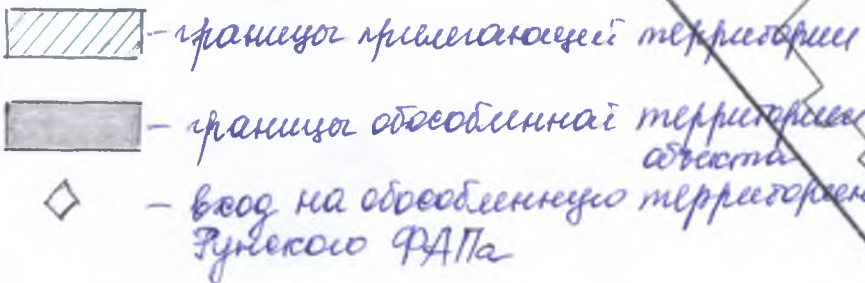 - границы прилегающей территории
- границы обособленной территории
объекта
- вход на обособленную территорию
Рунского ФАПа